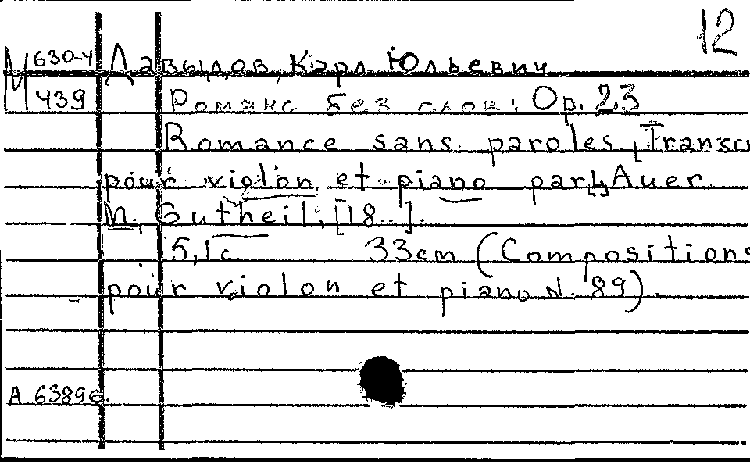 12
М 630-4
439
Давыдов, Карл Юльевич
Романс без слов. Op. 23
Romance sans paroles, Transcr
pour violon et piano par L, Auer.
M, Gutheil, [18..].
5,1с 33cm (Compositions
pour violon et piano N. 89).
А 6389е.